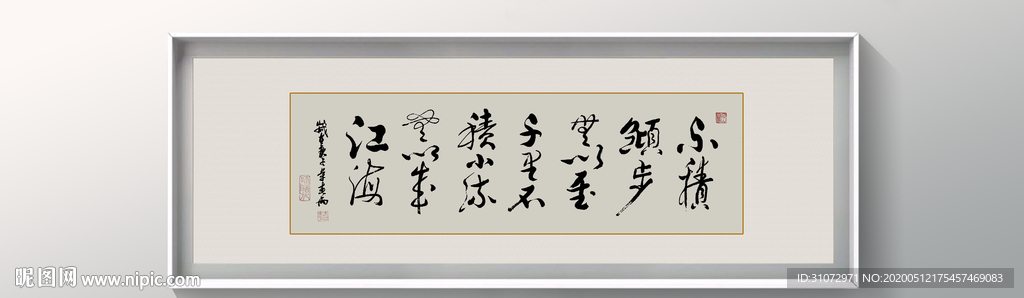 不積
蹞步
無以至
千里不
積小流
無以成
江海
昵图网 www.nipic.com
ID:31072971 NO:20200512175457469083